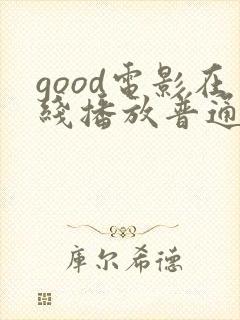 good電影在
綫播放普通
库尔希德